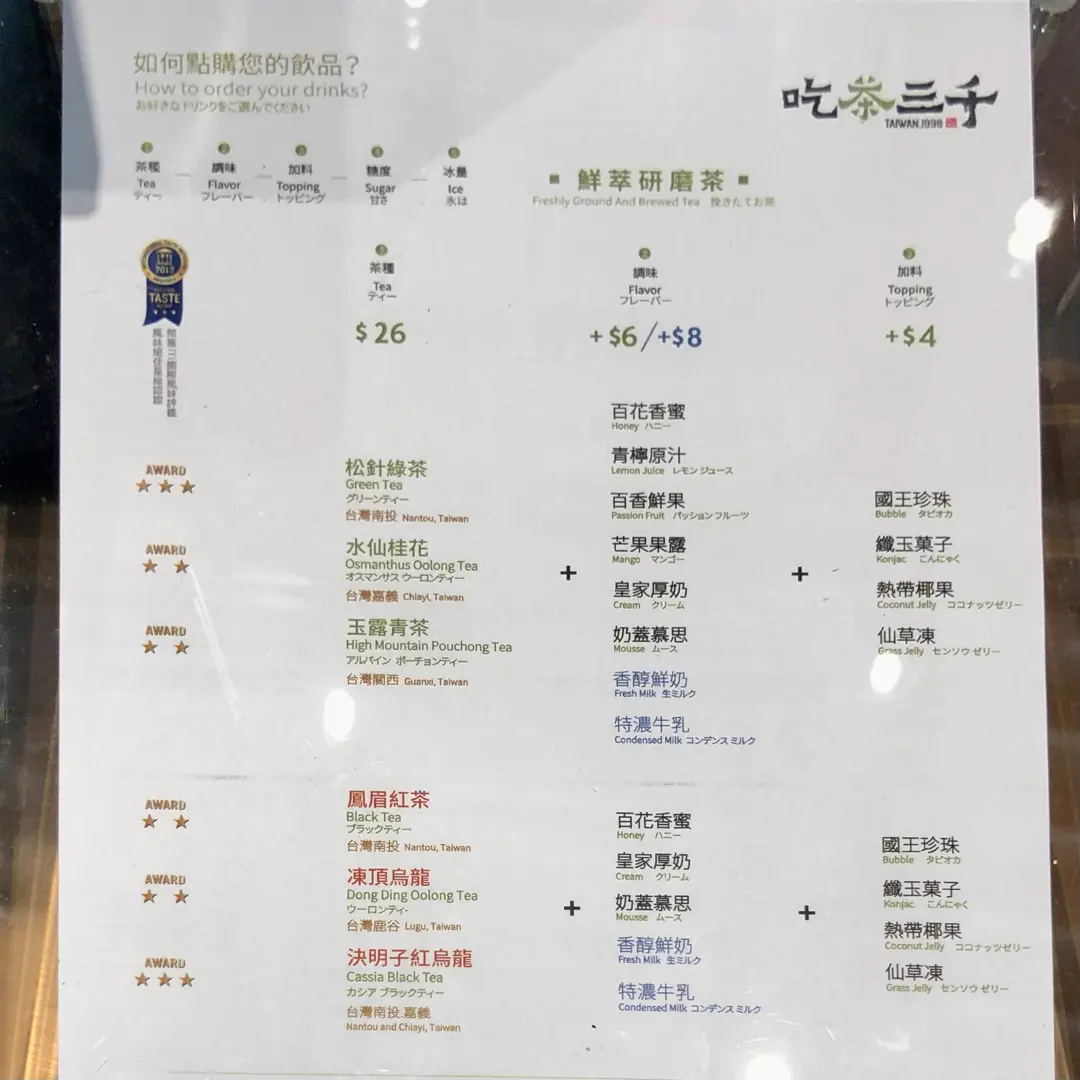 如何點購您的飲品？
How to order your drinks?
お好きなドリンクをご選んでください
吃茶三千
TAIWAN.1998
1 2 3 4 5
茶種 調味 加料 糖度 冰量
Tea Flavor Topping Sugar Ice
ティー フレーバー トッピング 甘さ 氷は
鮮萃研磨茶
Freshly Ground And Brewed Tea 挽きたてお茶
TASTE
茶種
Tea
ティー
$26
調味
Flavor
フレーバー
+$6/+$8
加料
Topping
トッピング
+$4
AWARD
松針綠茶
Green Tea
グリーンティー
台灣南投 Nantou, Taiwan
AWARD
水仙桂花
Osmanthus Oolong Tea
オスマンサス ウーロンティー
台灣嘉義 Chiayi, Taiwan
AWARD
玉露青茶
High Mountain Pouchong Tea
アルパイン ポーチョンティー
台灣關西 Guanxi, Taiwan
+
百花香蜜
Honey ハニー
青檸原汁
Lemon Juice レモン ジュース
百香鮮果
Passion Fruit パッション フルーツ
芒果果露
Mango マンゴー
皇家厚奶
Cream クリーム
奶蓋慕思
Mousse ムース
香醇鮮奶
Fresh Milk 生ミルク
特濃牛乳
Condensed Milk コンデンス ミルク
+
國王珍珠
Bubble タピオカ
纖玉菓子
Konjac こんにゃく
熱帶椰果
Coconut Jelly ココナッツゼリー
仙草凍
Grass Jelly センソウ ゼリー
AWARD
鳳眉紅茶
Black Tea
ブラックティー
台灣南投 Nantou, Taiwan
AWARD
凍頂烏龍
Dong Ding Oolong Tea
ウーロンティ-
台灣鹿谷 Lugu, Taiwan
AWARD
決明子紅烏龍
Cassia Black Tea
カシア ブラックティー
台灣南投.嘉義
Nantou and Chiayi, Taiwan
+
百花香蜜
Honey ハニー
皇家厚奶
Cream クリーム
奶蓋慕思
Mousse ムース
香醇鮮奶
Fresh Milk 生ミルク
特濃牛乳
Condensed Milk コンデンス ミルク
+
國王珍珠
Bubble タピオカ
纖玉菓子
Konjac こんにゃく
熱帶椰果
Coconut Jelly ココナッツゼリー
仙草凍
Grass Jelly センソウ ゼリー